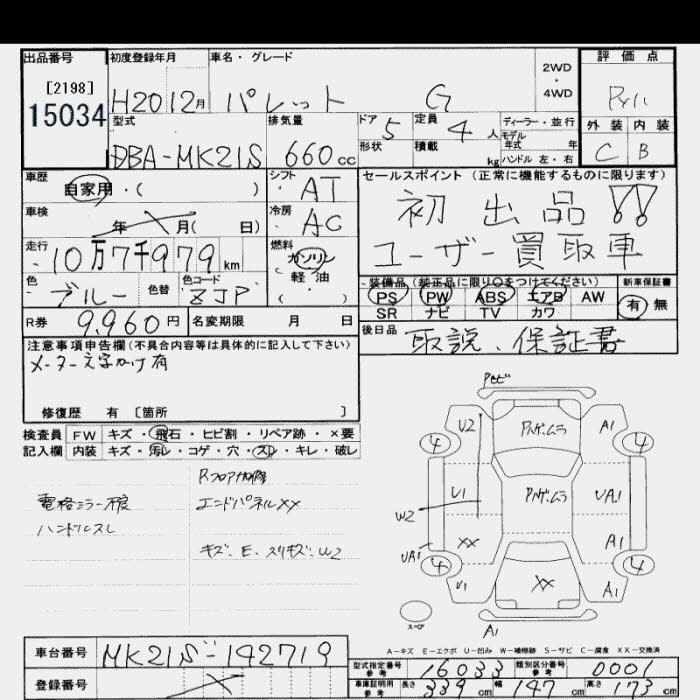 出品番号 初度登録年月 車名・グレード 評価点
[2198]
15034
H20 12月 パレット G
2WD
・
4WD
外装 内装
C B
型式 排気量 ドア 定員 ディーラー・並行
DBA-MK21S 660cc 5 4人
モデル年式 年
形状 積載 kg ハンドル 左・右
車歴 シフト セールスポイント (正常に機能するものに限ります)
自家用・( ) AT
初出品!!
車検 冷房
年 月( 日) AC
ユーザー買取車
走行 燃料
10万7千979km ガソリン
軽・油
( )
色 色替 色コード
ブルー ZJP
装備品 (純正品に限り○をつけてください) 新車保証書
PS PW ABS エアB AW 有 無
SR ナビ TV カワ
R券 9,960円 名変期限 月 日
後日品 取説、保証書
注意事項申告欄(不具合内容等は具体的に記入して下さい)
メーター文字かけ有
修復歴 有 [箇所 ]
検査員 FW キズ・飛石・ヒビ割・リペア跡・×要
記入欄 内装 キズ・汚レ・コゲ・穴・スレ・キレ・破レ
電格ミラー不良
ハンドルスレ
エンドパネルXX
キズ、E、スリキズ、U2
U2 A1
4 4
U1 UA1
W2
XX A1
UA1
4 4
U1 XX A1
スペア
A1
A-キズ E-エクボ U-凹み W-補修跡 S-サビ C-腐食 XX-交換済
車台番号 MK21S-142719
登録番号
型式指定番号 参考 16033 類別区分番号 参考 0001
車庫証明用 参考 長さ 339cm 幅 147cm 高さ 173cm